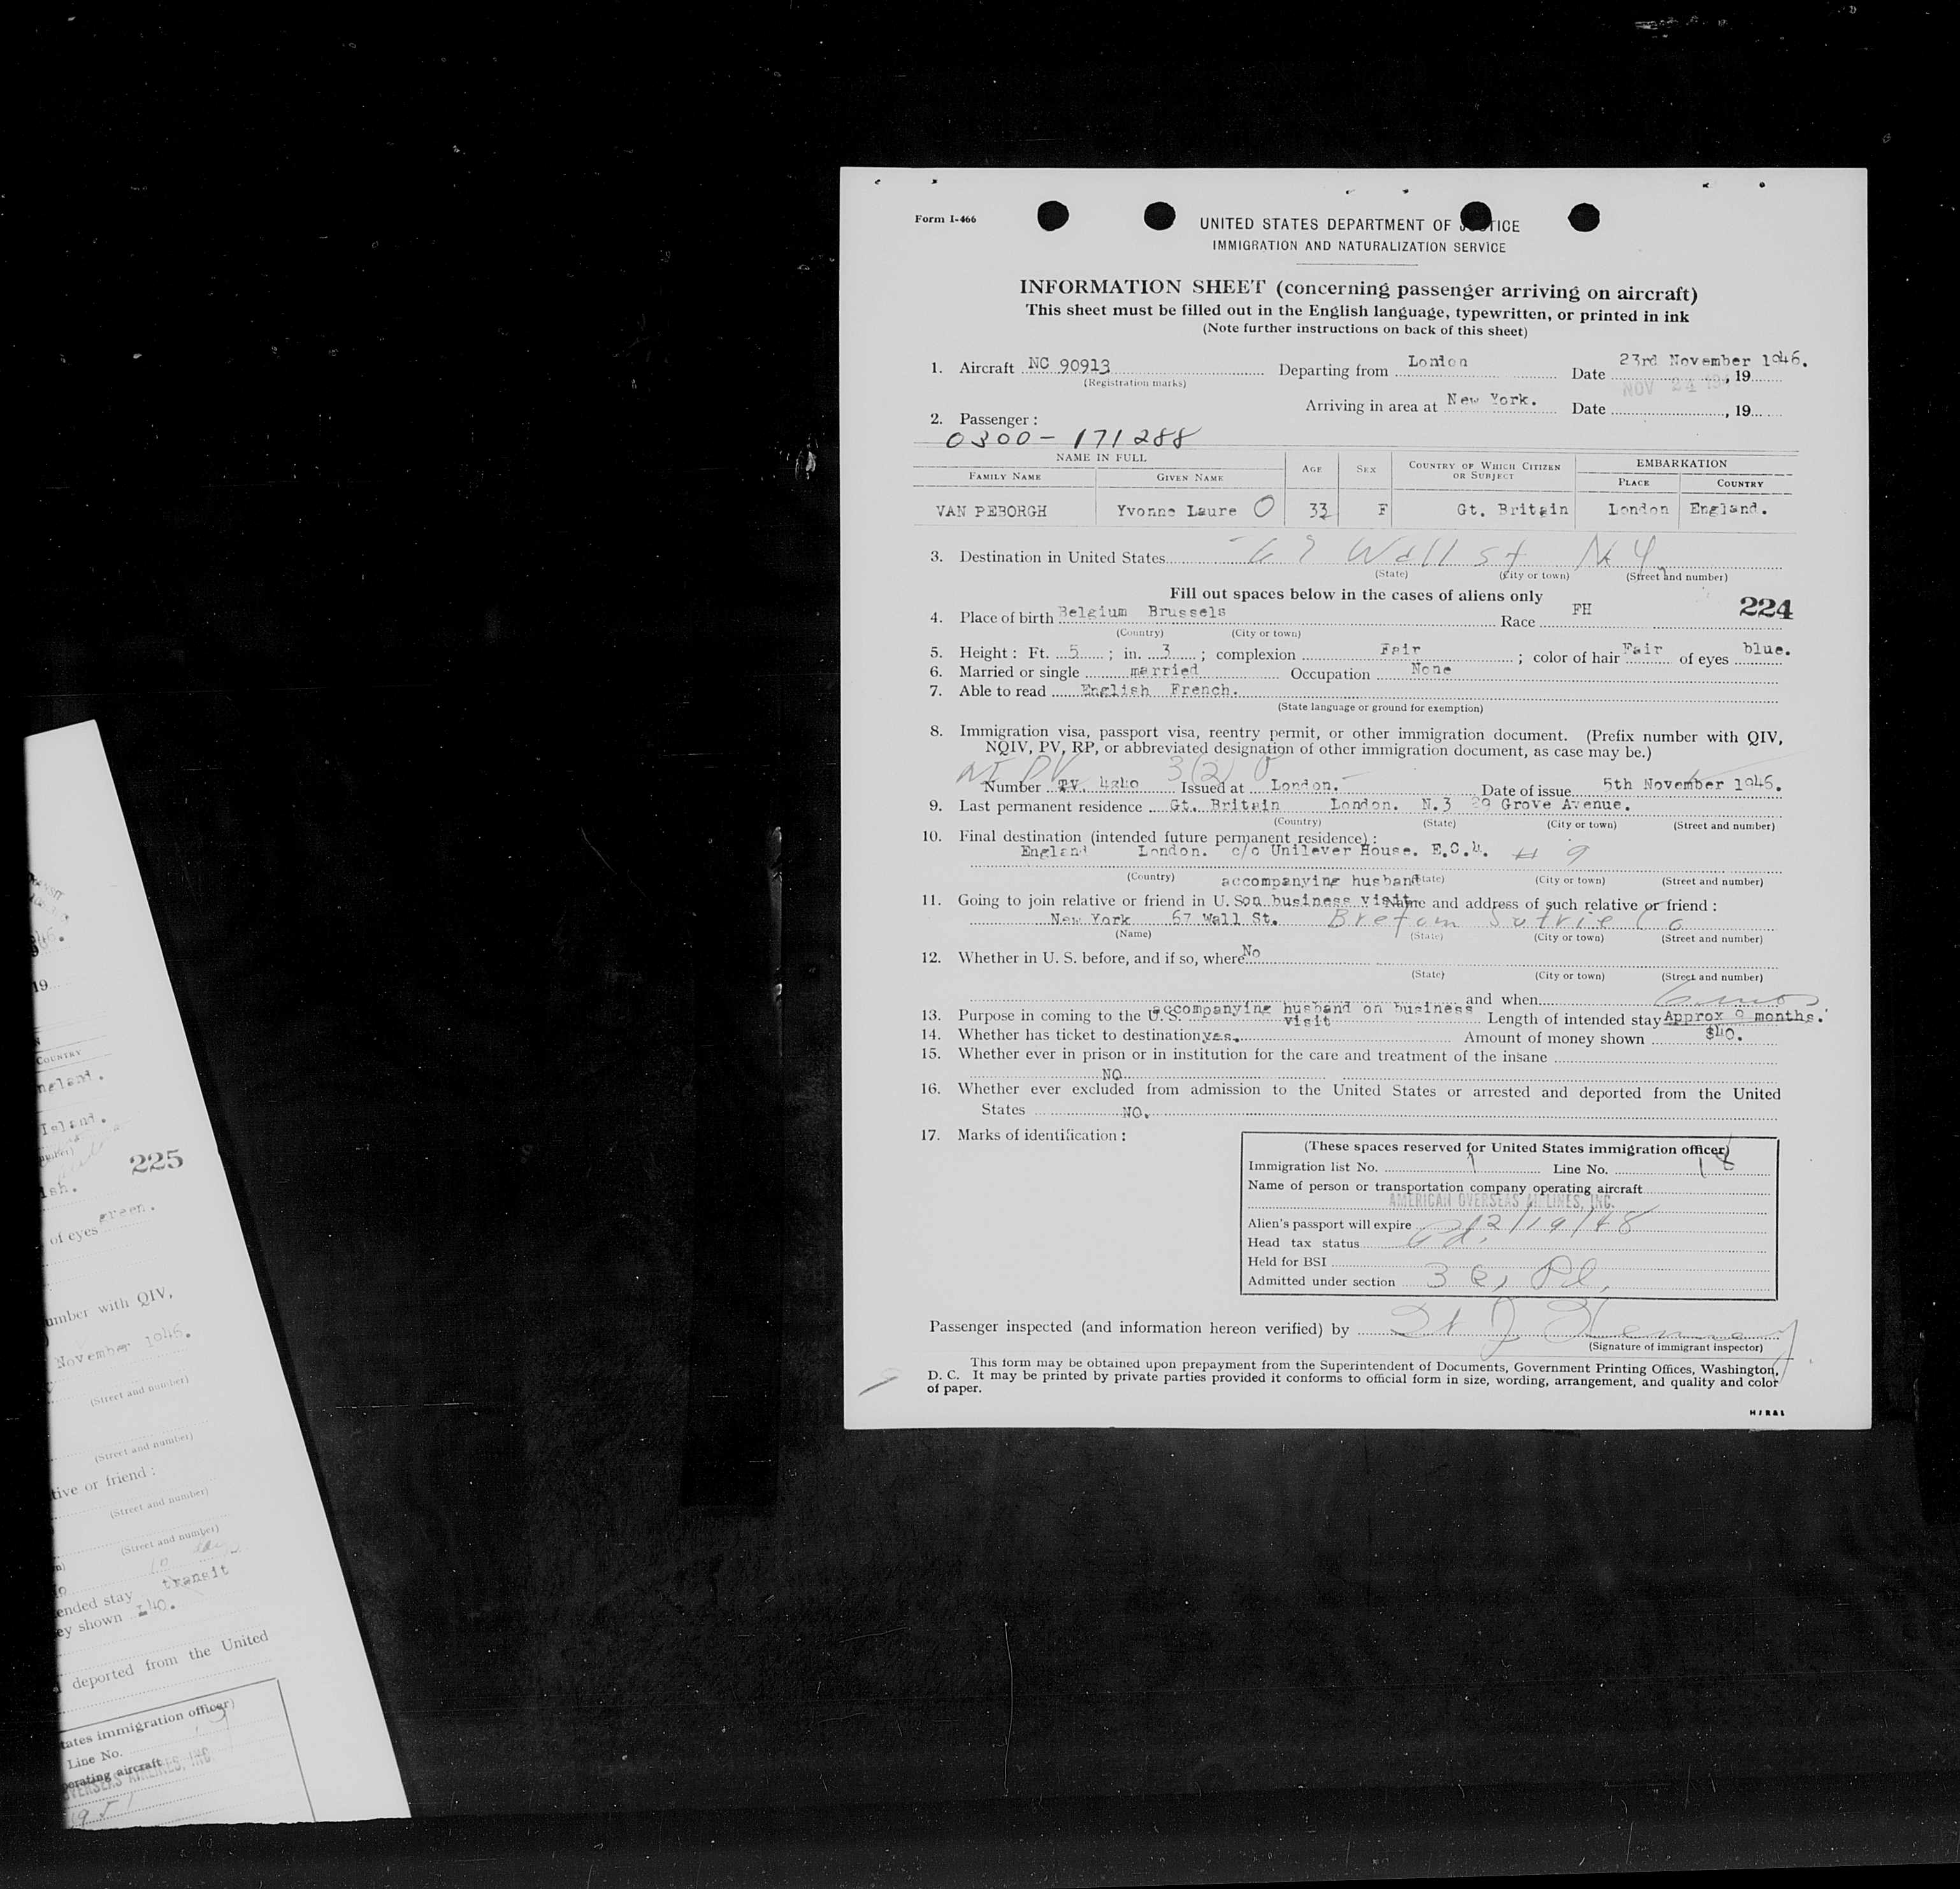 Form I-466
UNITED STATES DEPARTMENT OF JUSTICE
IMMIGRATION AND NATURALIZATION SERVICE
INFORMATION SHEET (concerning passenger arriving on aircraft)
This sheet must be filled out in the English language, typewritten, or printed in ink
(Note further instructions on back of this sheet)
1. Aircraft NC 90913 Departing from London Date 23rd November 1946. , 19
(Registration marks) NOV 24
Arriving in area at New York. Date , 19
2. Passenger :
0300 - 171288
NAME IN FULL AGE SEX COUNTRY OF WHICH CITIZEN OR SUBJECT EMBARKATION
FAMILY NAME GIVEN NAME PLACE COUNTRY
VAN PEBORGH Yvonne Laure O 33 F Gt. Britain London England.
3. Destination in United States 67 Wall St N Y
(State) (City or town) (Street and number)
Fill out spaces below in the cases of aliens only
224
4. Place of birth Belgium Brussels Race FH
(Country) (City or town)
5. Height : Ft. 5 ; in. 3 ; complexion Fair ; color of hair Fair of eyes blue.
6. Married or single married Occupation None
7. Able to read English French.
(State language or ground for exemption)
8. Immigration visa, passport visa, reentry permit, or other immigration document. (Prefix number with QIV,
NQIV, PV, RP, or abbreviated designation of other immigration document, as case may be.)
3(2)
Number Issued at London. Date of issue 5th November 1946.
9. Last permanent residence Gt. Britain London. N.3 29 Grove Avenue.
(Country) (State) (City or town) (Street and number)
10. Final destination (intended future permanent residece) :
England London. c/o Unilever House. E.C.4. # 9
(Country) (State) (City or town) (Street and number)
accompanying husband
11. Going to join relative or friend in U. S. on business visit. Name and address of such relative or friend :
New York 67 Wall St.
(Name) (State) (City or town) (Street and number)
12. Whether in U. S. before, and if so, where No
(State) (City or town) (Street and number)
and when 6 mos
13. Purpose in coming to the U. S. accompanying husband on business visit Length of intended stay Approx 9 months.
14. Whether has ticket to destination yes. Amount of money shown $40.
15. Whether ever in prison or in institution for the care and treatment of the insane
NO
16. Whether ever excluded from admission to the United States or arrested and deported from the United
States NO.
17. Marks of identification :
(These spaces reserved for United States immigration officer)
Immigration list No. 1 Line No. 18
Name of person or transportation company operating aircraft
AMERICAN OVERSEAS AIRLINES, INC.
Alien's passport will expire 12/19/48
Head tax status Pd.
Held for BSI
Admitted under section 3
Passenger inspected (and information hereon verified) by
(Signature of immigrant inspector)
This form may be obtained upon prepayment from the Superintendent of Documents, Government Printing Offices, Washington,
D. C. It may be printed by private parties provided it conforms to official form in size, wording, arrangement, and quality and color
of paper.
19
COUNTRY
225
of eyes green.
number with QIV,
November 1946.
(Street and number)
(Street and number)
tive or friend :
(Street and number)
(Street and number)
10
ended stay transit
ey shown 40.
deported from the United
tates immigration officer)
Line No.
perating aircraft
OVERSEAS AIRLINES, INC.